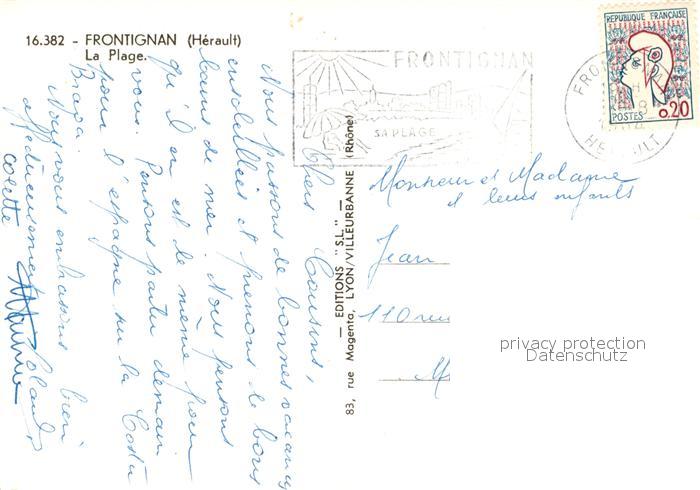 16.382 - FRONTIGNAN (Hérault)
La Plage.
Chers Cousins,
Nous passons de bonnes vacances
ensoleillées et prenons de bons
bains de mer. Nous pensons
qu'il en est de même pour
vous. Pensons partir demain
pour l'espagne sur la Costa
Brava.
Nous vous embrassons bien
affectueusement
Colette
Yolande
EDITIONS "S.L."
83, rue Magenta, LYON/VILLEURBANNE (Rhône)
FRONTIGNAN
SA PLAGE
HERAULT
REPUBLIQUE FRANÇAISE
POSTES
0,20
Monsieur et Madame
et leurs enfants
Jean
110 rue
M
privacy protection
Datenschutz